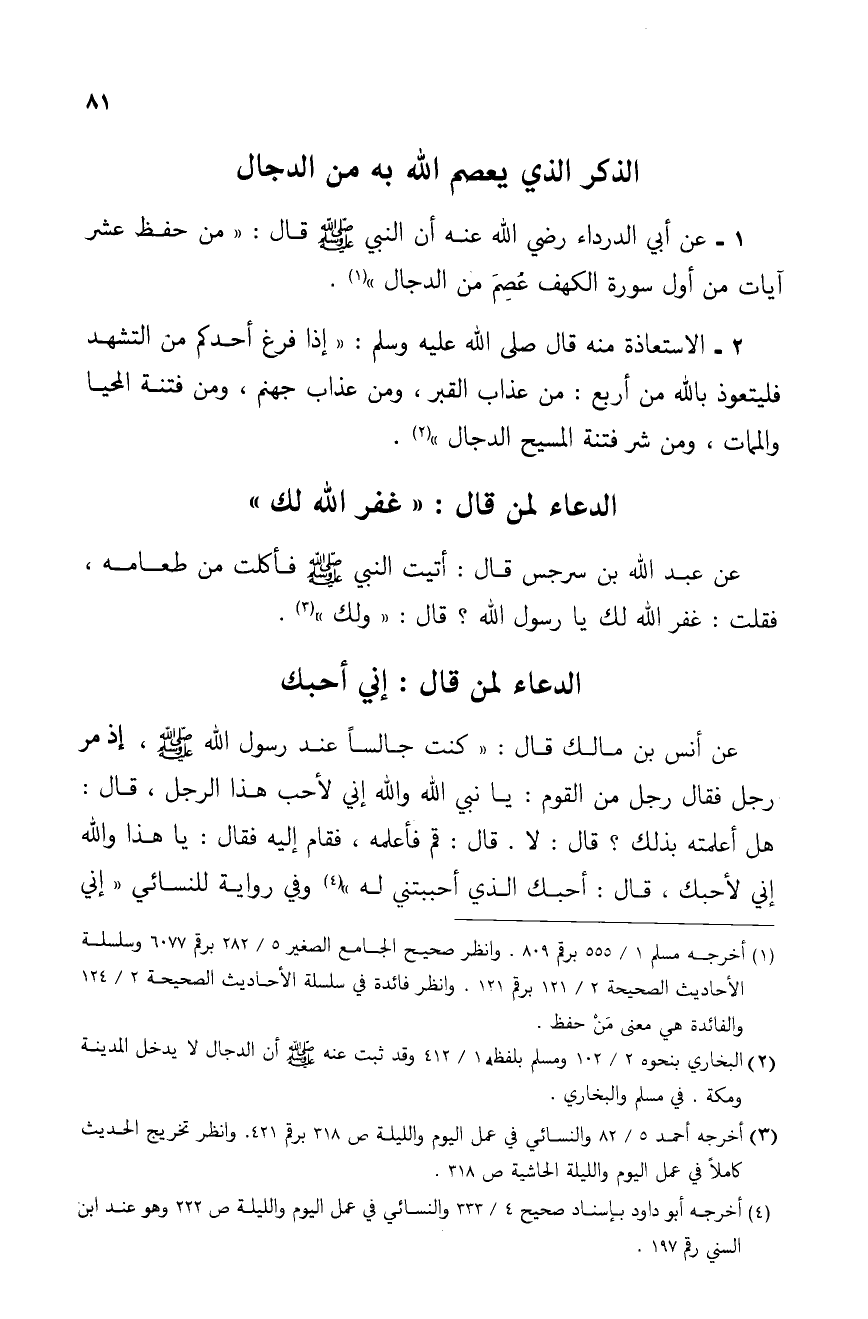 ٨١
الذكر الذي يعصم الله به من الدجال
١ ـ عن أبي الدرداء رضي الله عنـه أن النبي ﷺ قـال : « من حفـظ عشر
آيات من أول سورة الكهف عُصِمَ من الدجال »(١) .
٢ ـ الاستعاذة منه قال صلى الله عليه وسلم : « إذا فرغ أحـدكم من التشهـد
فليتعوذ بالله من أربع : من عذاب القبر ، ومن عذاب جهنم ، ومن فتنـة المحيـا
والممات ، ومن شر فتنة المسيح الدجال »(٢) .
الدعاء لمن قال : « غفر الله لك »
عن عبـد الله بن سرجس قـال : أتيت النبي ﷺ فـأكلت من طعـامـه ،
فقلت : غفر الله لك يا رسول الله ؟ قال : « ولك »(٣) .
الدعاء لمن قال : إني أحبك
عن أنس بن مـالـك قـال : « كنت جـالسـاً عنـد رسول الله ﷺ ، إذ مر
رجل فقال رجل من القوم : يـا نبي الله والله إني لأحب هـذا الرجل ، قـال :
هل أعلمته بذلك ؟ قال : لا . قال : قم فأعلمه ، فقام إليه فقال : يا هـذا والله
إني لأحبك ، قـال : أحبـك الـذي أحببتني لـه »(٤) وفي روايـة للنسـائي « إني
(١) أخرجـه مسلم ١ / ٥٥٥ برقم ٨٠٩ . وانظر صحيـح الجـامـع الصغير ٥ / ٢٨٢ برقم ٦٠٧٧ وسلسلـة
الأحاديث الصحيحة ٢ / ١٢١ برقم ١٢١ . وانظر فائدة في سلسلة الأحـاديث الصحيحـة ٢ / ١٢٤
والفائدة هي معنى مَنْ حفظ .
(٢) البخاري بنحوه ٢ / ١٠٢ ومسلم بلفظه ١ / ٤١٢ وقد ثبت عنه ﷺ أن الدجال لا يدخل المدينـة
ومكة . في مسلم والبخاري .
(٣) أخرجه أحمد ٥ / ٨٢ والنسائي في عمل اليوم والليلة ص ٣١٨ برقم ٤٢١. وانظر تخريج الحـديث
كاملاً في عمل اليوم والليلة الحاشية ص ٣١٨ .
(٤) أخرجـه أبو داود بـإسنـاد صحيح ٤ / ٣٣٣ والنسـائي في عمل اليوم والليلـة ص ٢٢٢ وهو عنـد ابن
السني رقم ١٩٧ .